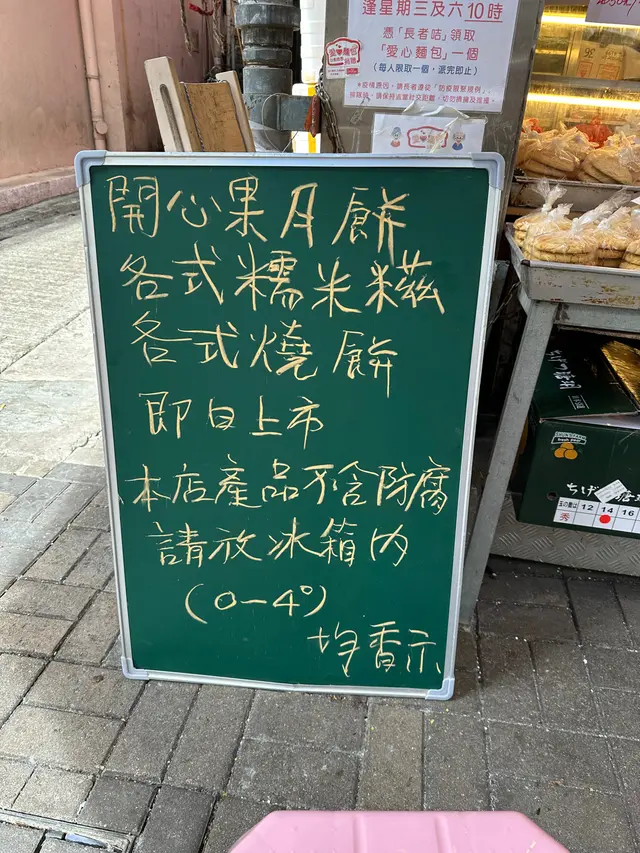 逢星期三及六10時
憑「長者咭」領取
「愛心麵包」一個
(每人限取一個，派完即止)
開心果月餅
各式糯米糍
各式燒餅
即日上市
本店產品不含防腐
請放冰箱內
(0-4°)
均香示
ちげ
12 14 16
秀